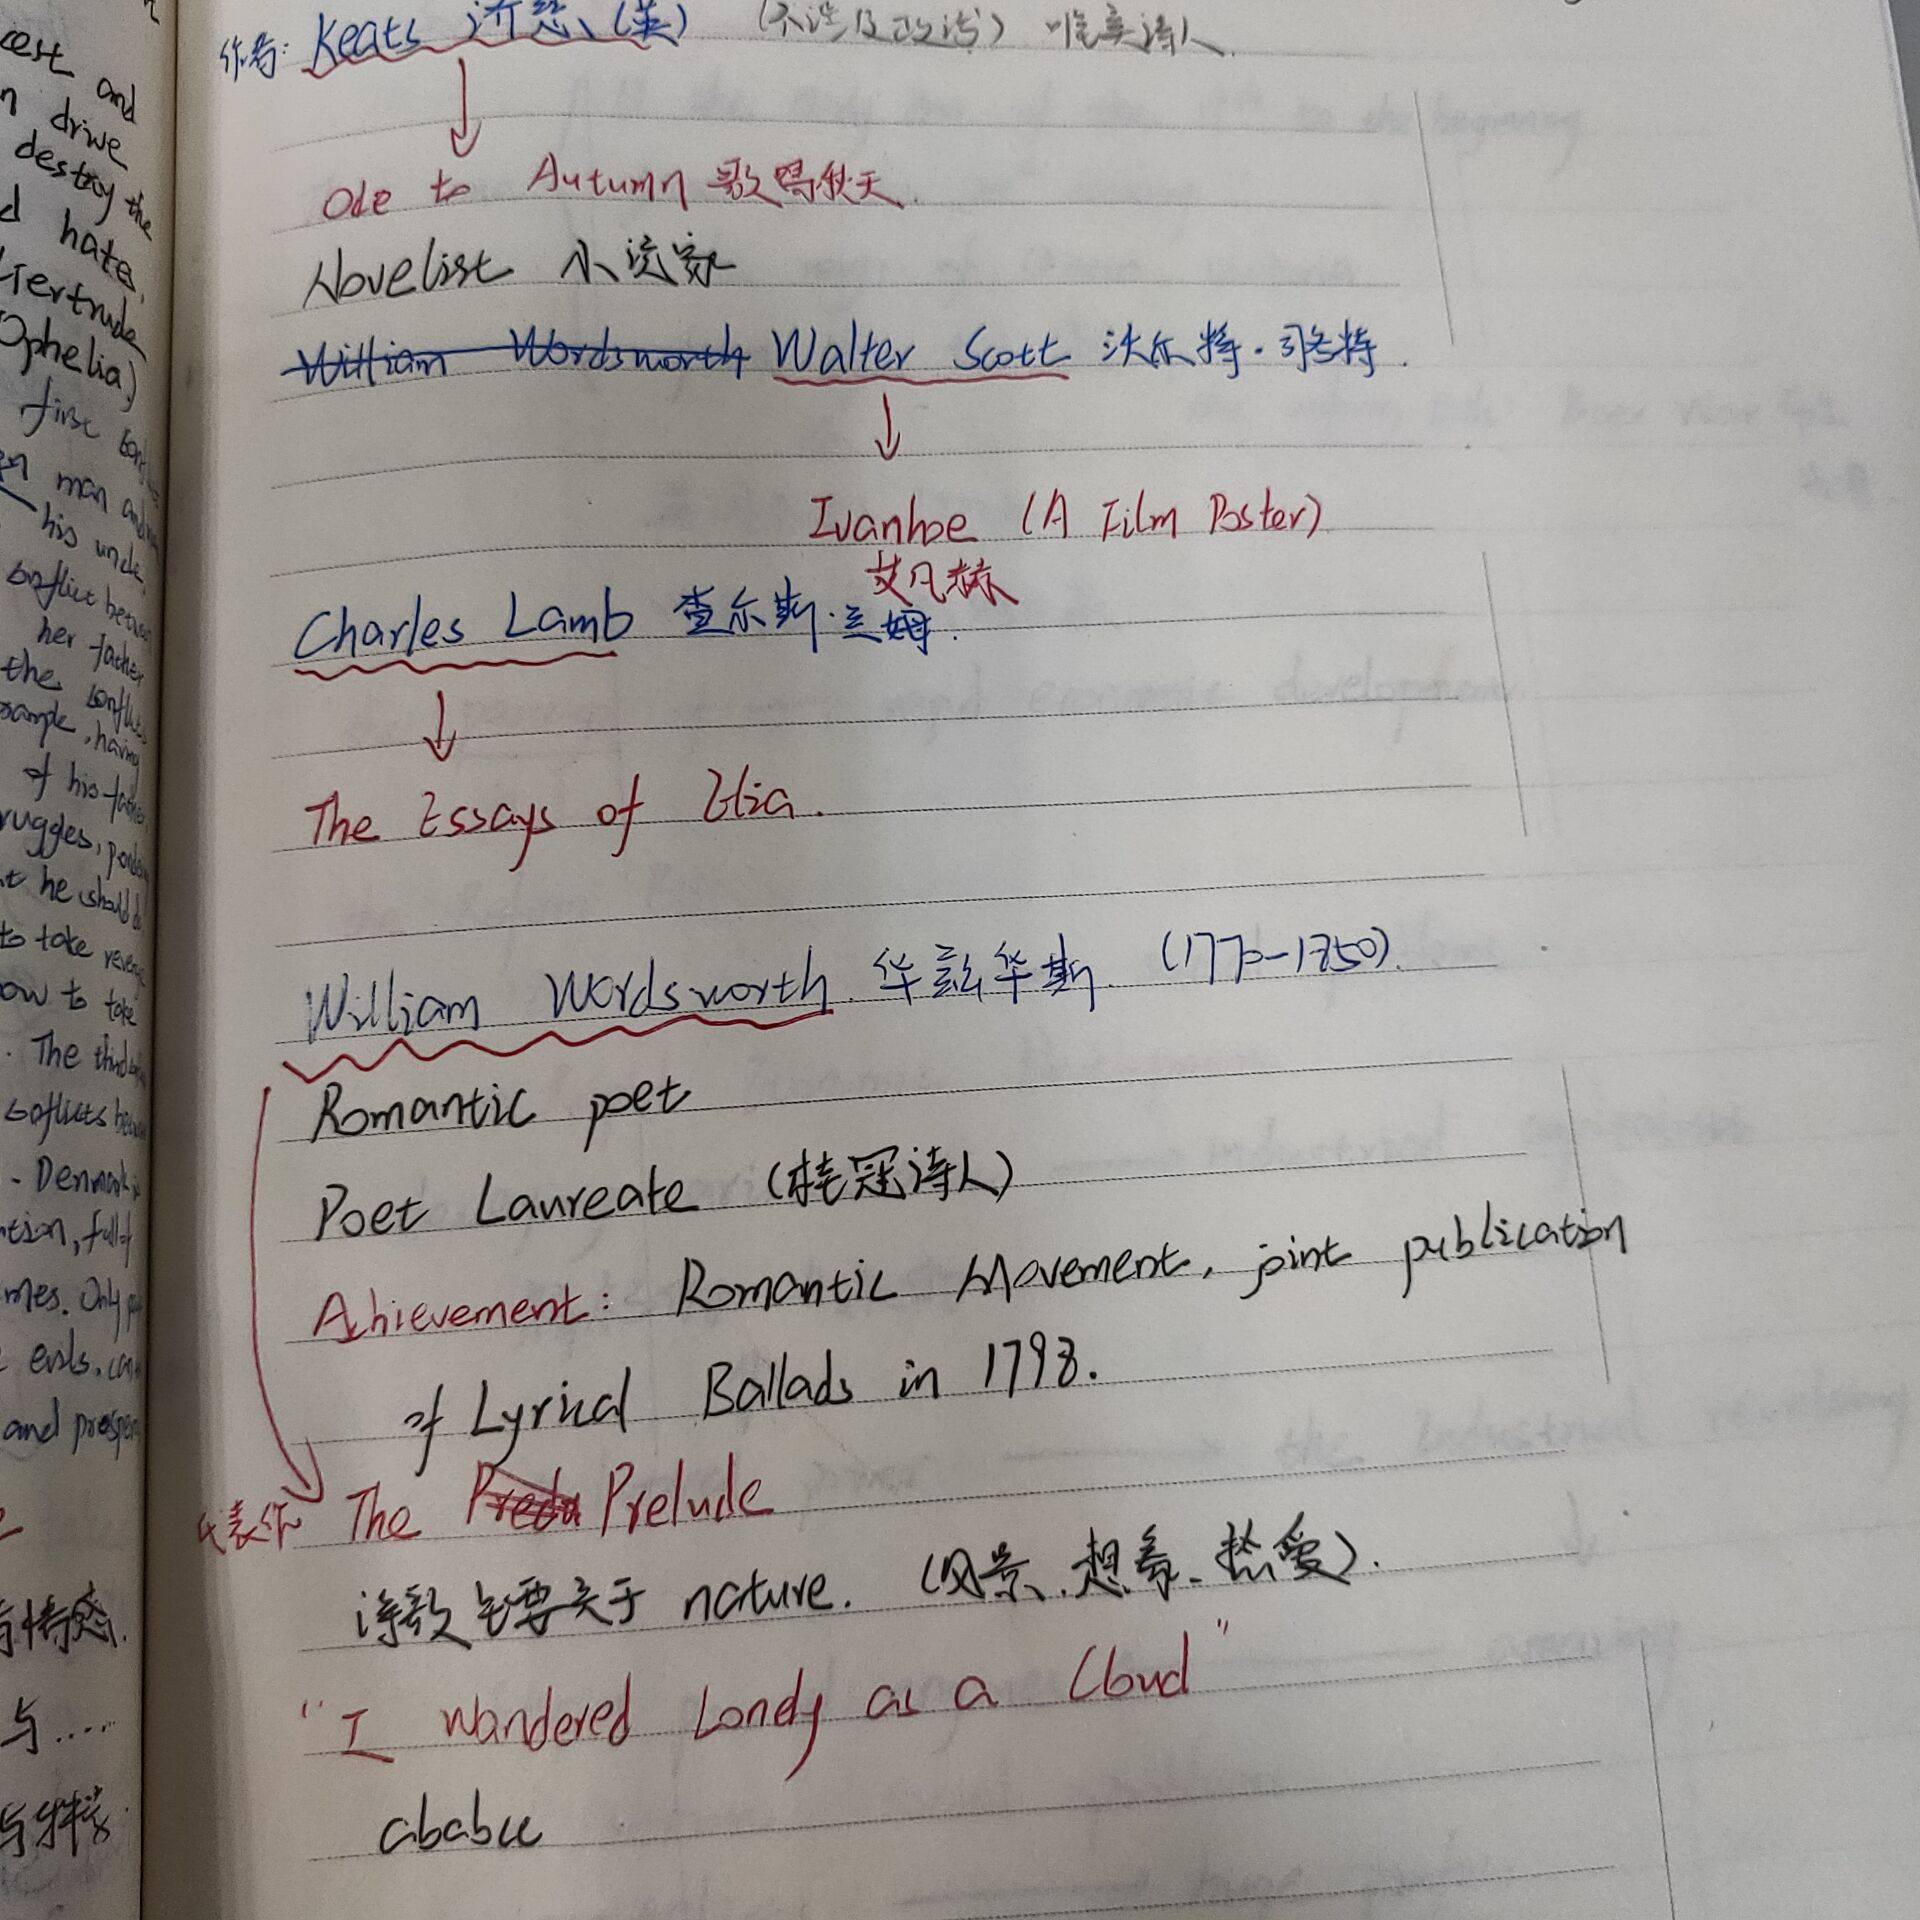 cest and
drive
destroy the
d hate,
Gertrude
Ophelia)
first
man and
his uncle
conflict between
her father
the conflict
example, having
of his father
ruggles,
t he should
to take revenge
ow to take
. The third
conflicts
- Denmark
tion, full of
mes. Only
evils.
and
与情感.
与……
作者: Keats 济慈、(英) (不涉及政治) 唯美诗人.
Ode to Autumn 歌唱秋天.
Novelist 小说家
William Wordsworth Walter Scott 沃尔特·司各特.
Ivanhoe (A Film Poster)
艾凡赫
Charles Lamb 查尔斯·兰姆.
The Essays of Elia.
William Wordsworth. 华兹华斯. (1770-1850).
Romantic poet
Poet Laureate (桂冠诗人)
Achievement: Romantic Movement, joint publication
of Lyrical Ballads in 1798.
代表作 The Predu Prelude
诗歌主要关于 nature. (风景、想象、热爱).
"I wandered Lonely as a Cloud"
ababcc